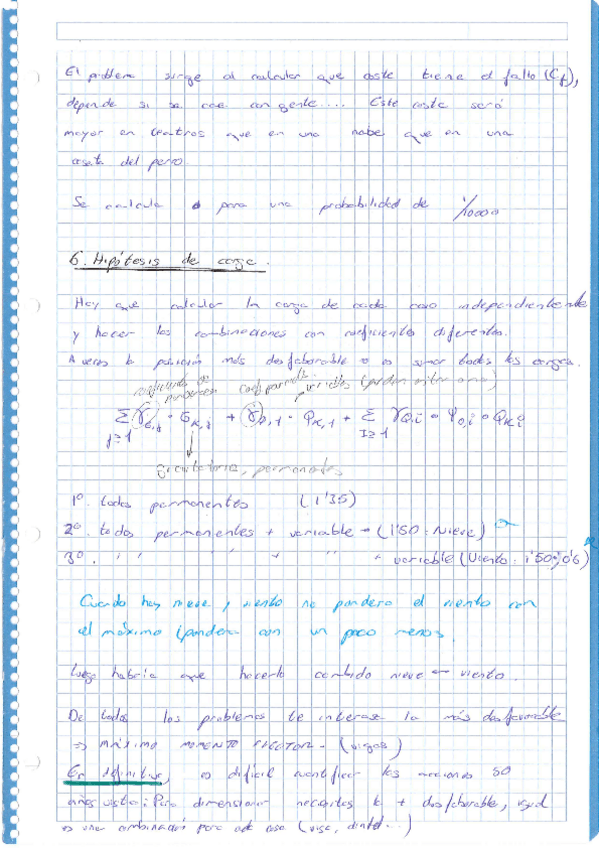 El problema surge al calcular que coste tiene el fallo (Cf),
depende si se cae con gente.... Este coste será
mayor en teatros que en una nabe que en una
caseta del perro.
Se calcula para una probabilidad de 1/10000
6. Hipótesis de carga.
Hay que calcular la carga de cada caso independiente
y hacer las combinaciones con coeficientes diferentes.
A veces la posición más desfaborable no es sumar todas las cargas.
coeficiente de ponderacion coef parcial variables
∑ γG,j · GK,j + γQ,1 · QK,1 + ∑ γQ,i · Ψ0,i · QK,i
j≥1 I≥1
gravitatoria, permanentes
1º. todos permanentes (1'35)
2º. todos permanentes + variable → (1'50: Nieve)
3º. '' '' '' + '' + variable (Viento: 1'50·0'6)
Cuando hay nieve y viento no pondero el viento con
el máximo (pondera con un poco menos.
Luego habría que hacerlo cambiado nieve ↔ viento.
De todos los problemas te interesa la más desfavorable
⇒ MÁXIMO MOMENTO FLECTOR - (vigas)
En definitiva, es difícil cuantificar las acciones 50
años vista: Para dimensionar necesitas la + desfaborable,
es una combinación para cada caso (viga, dintel...)